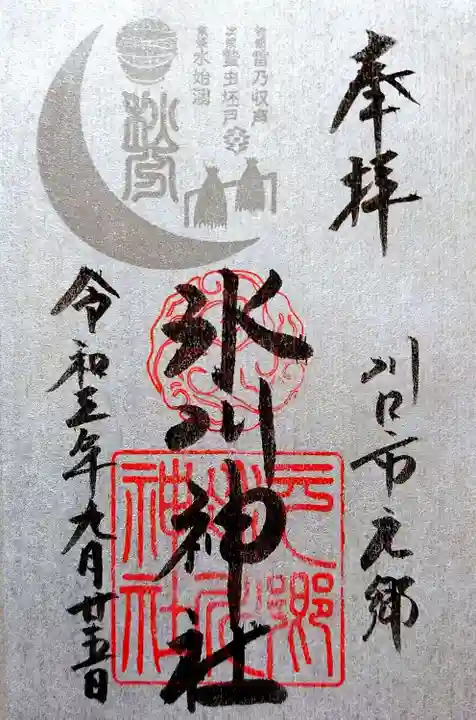 奉拝
川口市元郷
氷川神社
元郷
氷川
神社
初候 雷乃収声
次候 蟄虫坏戸
末候 水始涸
秋分
令和三年九月廿五日